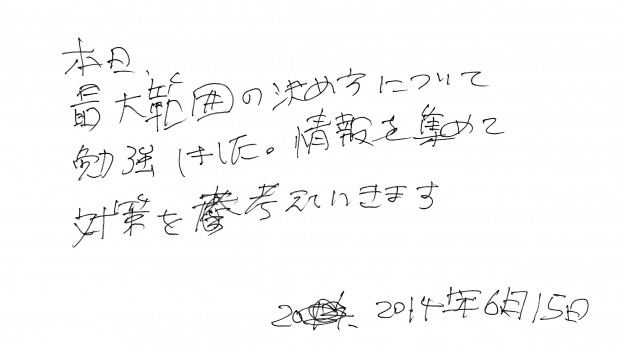 本日、
最大範囲の決め方について
勉強しました。情報を集めて
対策を考えていきます
2014年6月15日